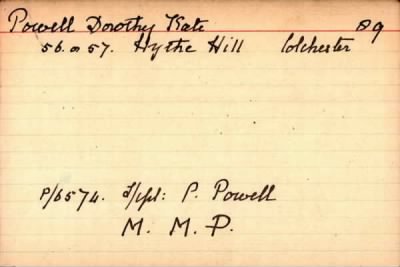 Powell Dorothy Kate 89
56 or 57. Hythe Hill Colchester
P/6574. L/Cpl: P. Powell
M. M. P.